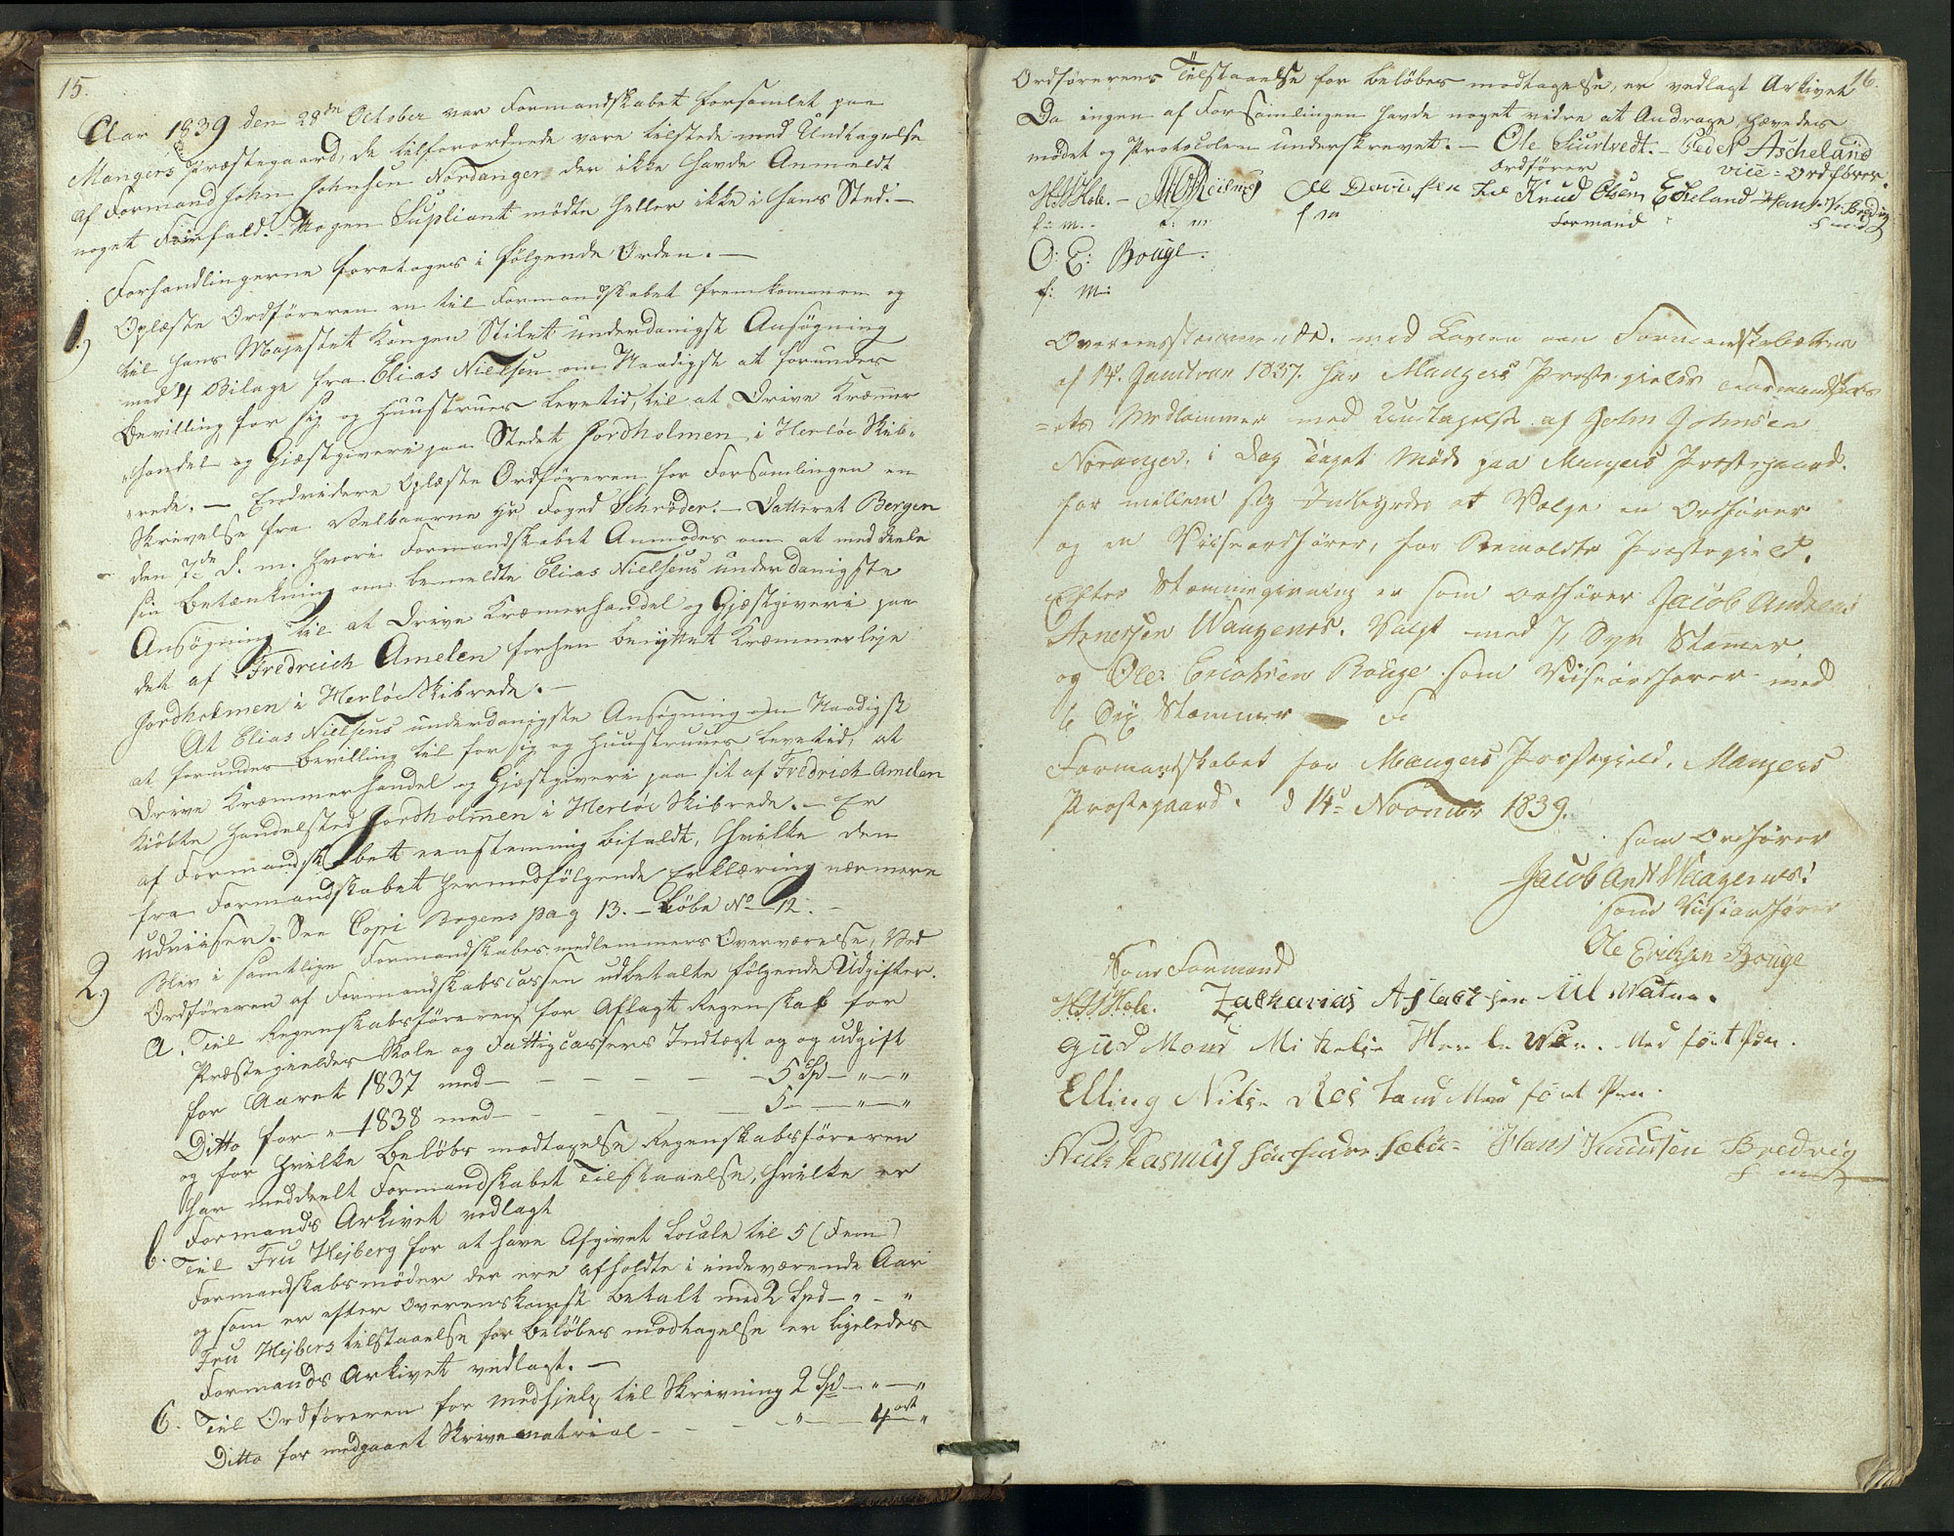 15.
Aar 1839 den 28de October var Formandskabet forsamlet paa
Mangers Præstegaard, de tilforordnede vare tilstede med Undtagelse
af Formand John Johnsen Nordanger der ikke havde Anmeldt
noget Forfald. Nogen Supliant mødte heller ikke i hans Sted. —
Forhandlingerne foretoges i følgende Orden. —
1.) Oplæste Ordføreren en til Formandskabet fremkommen og
til hans Majestæt Kongen Stilet underdanigst Ansøgning
med 4 Bilage fra Elias Nielsen om Naadigst at forundes
Bevilling for sig og Huustrues Levetid, til at Drive Kræmmer
handel og Gjæstgiveri paa Stedet Jordholmen i Herløe Skib-
rede. — Endvidere Oplæste Ordføreren for Forsamlingen en
Skrivelse fra Velbaarne Hr Foged Schrøder. — Datteret Bergen
den 7de d. m. hvori Formandskabet Anmodes om at meddeele
sin Betænkning om bemeldte Elias Nielsens underdanigste
Ansøgning til at Drive Kræmerhandel og Gjæstgiveri paa
det af Fredreich Amelen forhen benyttet Kræmmerleje
Jordholmen i Herløe Skibrede. —
At Elias Nielsens underdanigste Ansøgning om Naadigst
at forundes Bevilling til for sig og Huustrues Levetid, at
Drive Kræmmerhandel og Gjæstgiveri paa sit af Fredrich Amelen
kiøbte Handelsted Jordholmen i Herløe Skibrede. — Er
af Formandskabet eenstemmig bifaldt, hvilke den
fra Formandskabet hermedfølgende Erklæring nærmere
udviiser. See Copi Bogens pag 13. — Løbe No 12. —
2.) Blev i samtlige Formandskabesmedlemmers Overværelse, Ved
Ordføreren af Formandskabscassen udbetalte følgende Udgifter.
a. Til Regenskabsføreren for Aflagt Regenskab for
Præstegieldes Skole og Fattigcassers Indtægt og og udgift
for Aaret 1837 med — — — — — 5 Spd — " — "
Ditto for " 1838 med — — — — 5 — — " — "
og for hvilke Beløbs modtagelse Regenskabsføreren
har meddeelt Formandskabet Tilstaaelse, hvilke er
Formands Arkivet vedlagt
b. Til Fru Hejberg for at have Afgivet Locale til 5 (Fem)
Formandskabsmøder der ere afholdte i indeværende Aar
og som er efter Overenskomst betalt med 2 Spd — " — "
Fru Hejbergs tilstaaelse for Beløbes modtagelse er ligeledes
Formands Arkivet vedlagt. —
C. Til Ordføreren for medhjelp til Skrivning 2 Spd — " — "
Ditto for medgaaet Skrivematrial — — " — 4 ort "
16.
Ordførerens Tilstaaelse for Beløbes modtagelse, er vedlagt Arkivet
Da ingen af Forsamlingen havde noget vidre at Andrage hævedes
mødet og Protocolen underskrevet. — Ole Suurtvedt. — Peder Ascheland
Ordfører vice-Ordfører.
HHHole. — Ole Knud Olsen Echeland Hans Bredvig
f: m. f: m f m Formand f m
O: E: Bouge.
f: m:
Overeensstemmende. med Loven om Formandskabet
af 14. Januar 1837. har Mangers Præstegields Formandskab
=ets Medlemmer med Undtagelse af John Johnsen
Noranger. i Dag taget Møde paa Mangers Præstegaard.
for mellem sig Indbyrdes at Vælge en Ordfører
og en Viiseordfører, for Bemeldte Præstegield.
Efter Stemmegivning er som Ordfører Jacob Andreas
Arnessen Waagenes. Valgt med 7, Syv Stemmer
og Ole: Erichsen Bouge som Viiseordfører med
6 Sex Stemmer
Formandskabet for Mangers Præstegield. Mangers
Præstegaard. d 14d November 1839.
som Ordfører
Jacob And Waagenes.
som Viiseordfører
Ole Erichsen Bouge
Som Formand
HHHole. Zacharias Aslachsen
Gudmond Mikelse Med ført Pen.
Elling Nilse Med ført Pen.
Niels Rasmus Hans Knudsen Bredvig
f m